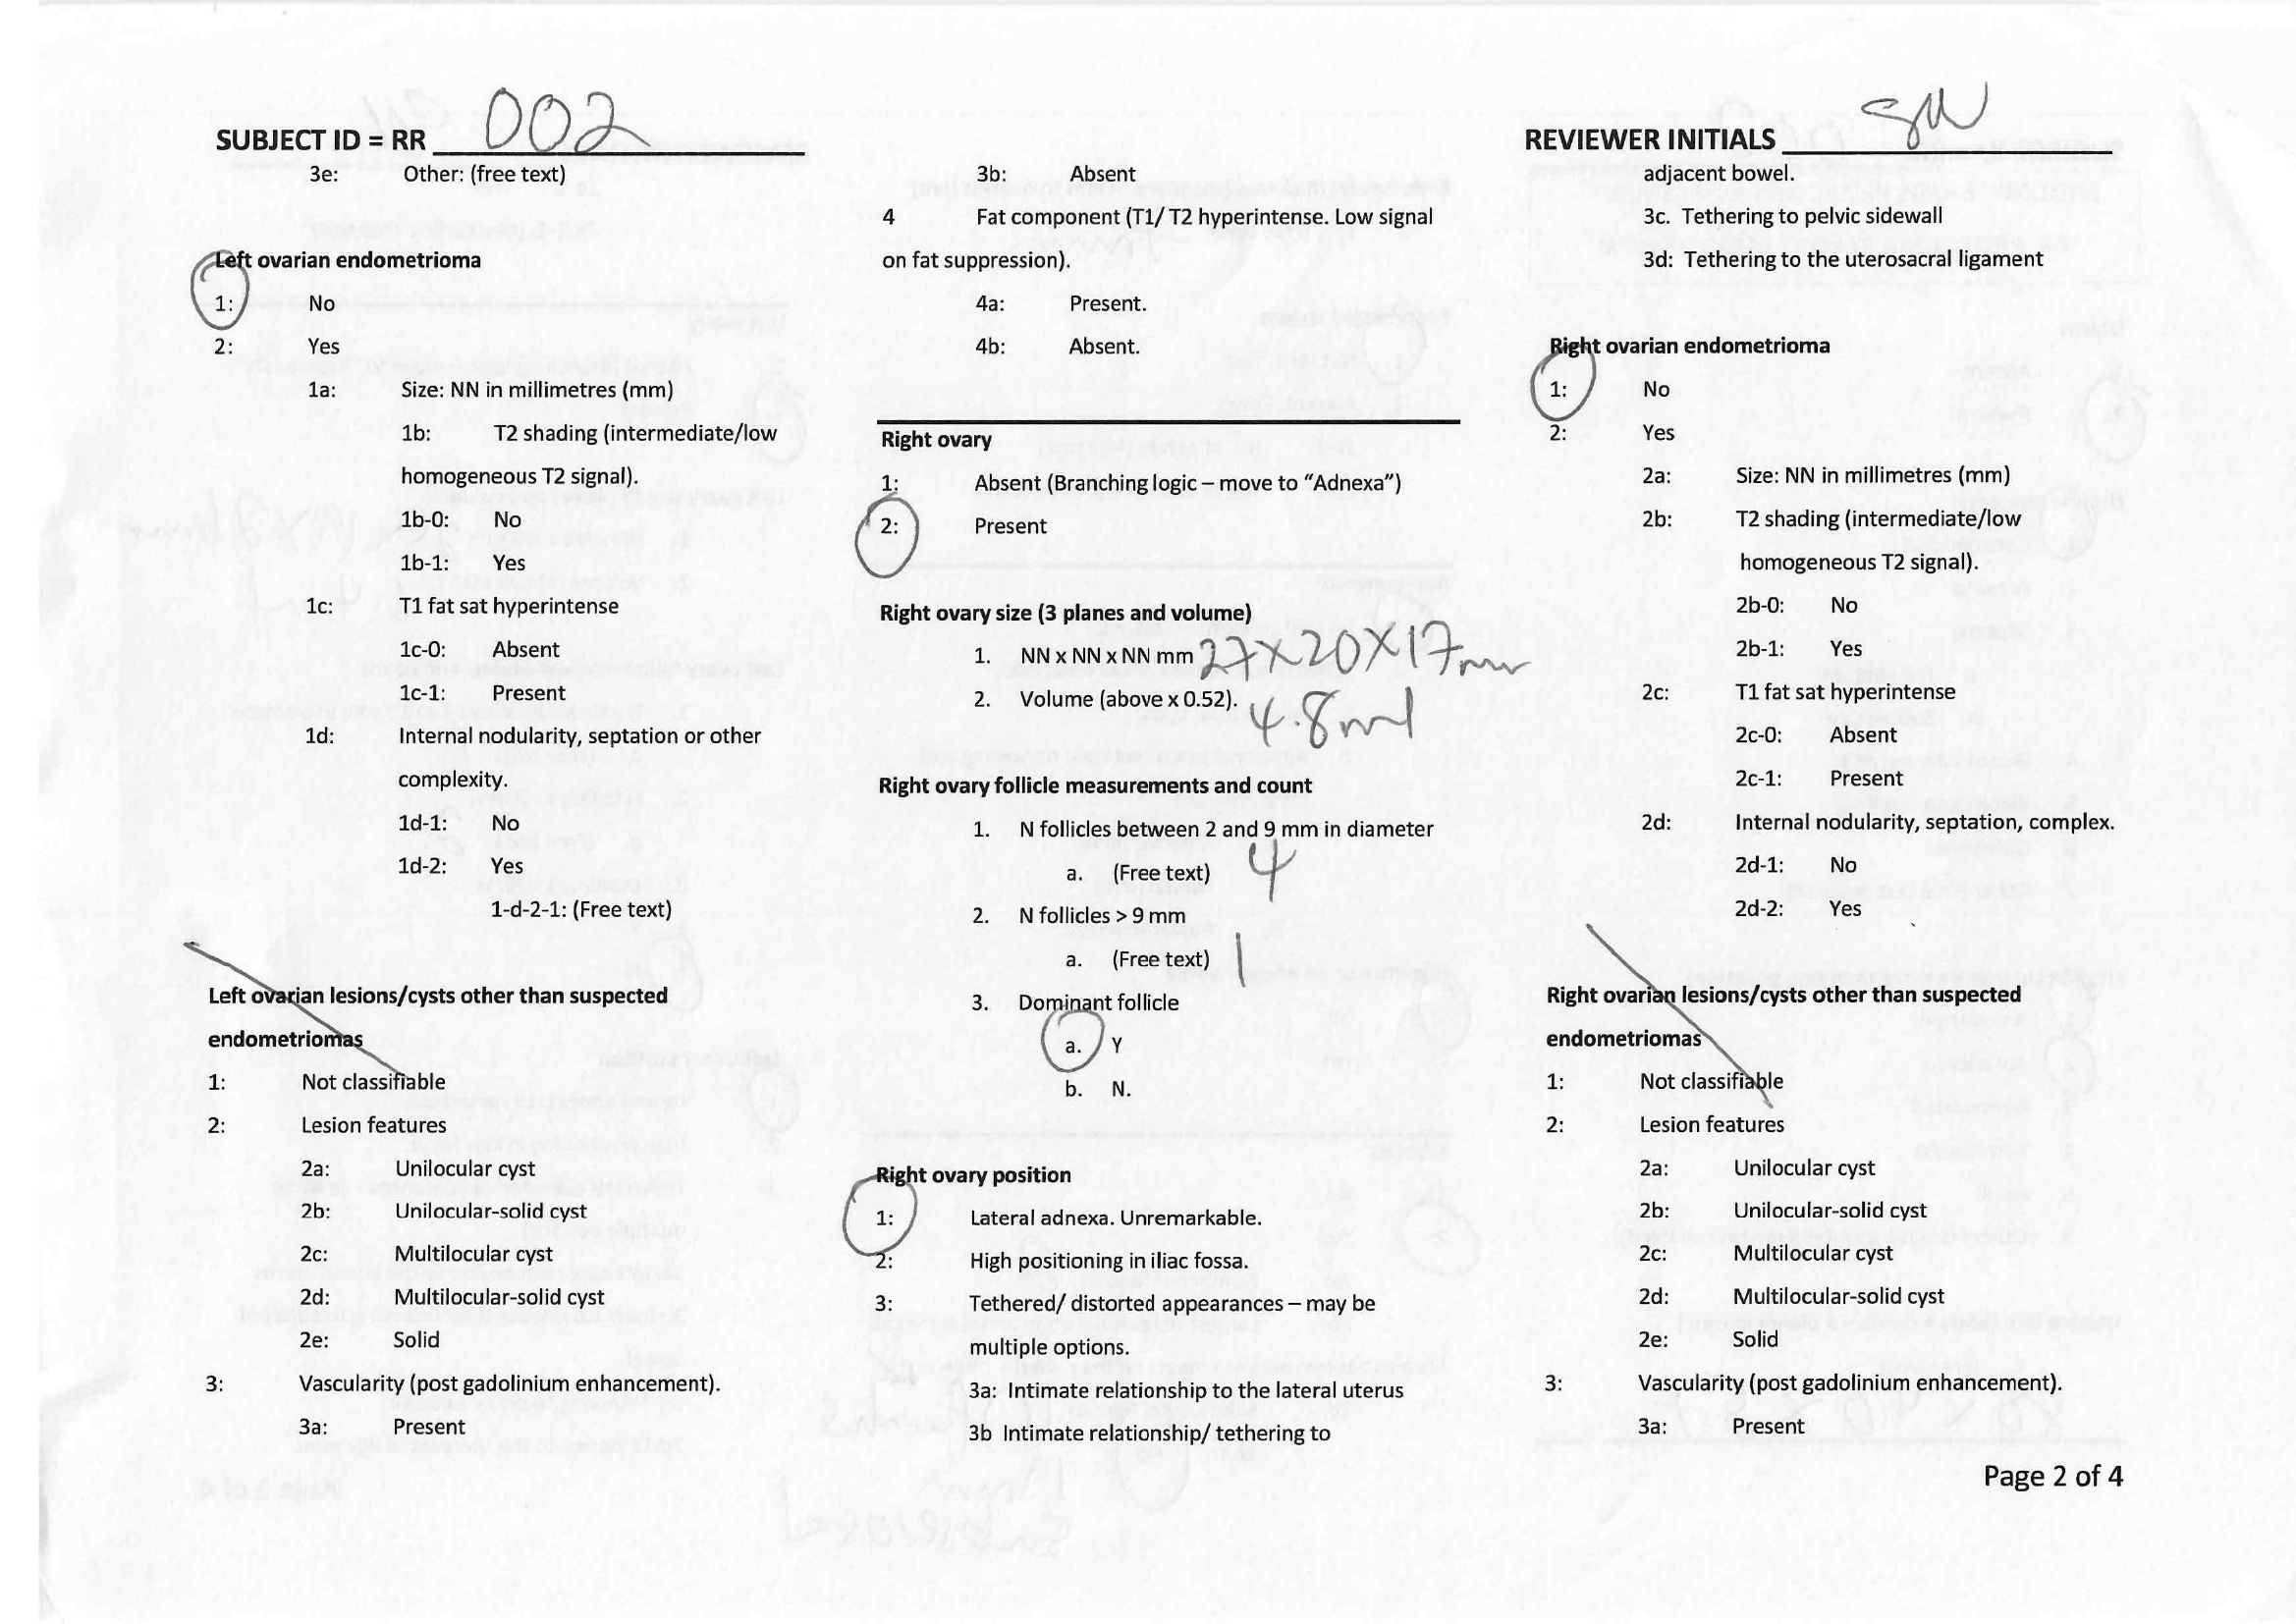 SUBJECT ID = RR 002
3e: Other: (free text)
Left ovarian endometrioma
1: No
2: Yes
1a: Size: NN in millimetres (mm)
1b: T2 shading (intermediate/low
homogeneous T2 signal).
1b-0: No
1b-1: Yes
1c: T1 fat sat hyperintense
1c-0: Absent
1c-1: Present
1d: Internal nodularity, septation or other
complexity.
1d-1: No
1d-2: Yes
1-d-2-1: (Free text)
Left ovarian lesions/cysts other than suspected
endometriomas
1: Not classifiable
2: Lesion features
2a: Unilocular cyst
2b: Unilocular-solid cyst
2c: Multilocular cyst
2d: Multilocular-solid cyst
2e: Solid
3: Vascularity (post gadolinium enhancement).
3a: Present
3b: Absent
4 Fat component (T1/ T2 hyperintense. Low signal
on fat suppression).
4a: Present.
4b: Absent.
Right ovary
1: Absent (Branching logic – move to “Adnexa”)
2: Present
Right ovary size (3 planes and volume)
1. NN x NN x NN mm 27X20X17mm
2. Volume (above x 0.52). 4.8ml
Right ovary follicle measurements and count
1. N follicles between 2 and 9 mm in diameter
a. (Free text) 4
2. N follicles > 9 mm
a. (Free text) 1
3. Dominant follicle
a. Y
b. N.
Right ovary position
1: Lateral adnexa. Unremarkable.
2: High positioning in iliac fossa.
3: Tethered/ distorted appearances – may be
multiple options.
3a: Intimate relationship to the lateral uterus
3b Intimate relationship/ tethering to
REVIEWER INITIALS SN
adjacent bowel.
3c. Tethering to pelvic sidewall
3d: Tethering to the uterosacral ligament
Right ovarian endometrioma
1: No
2: Yes
2a: Size: NN in millimetres (mm)
2b: T2 shading (intermediate/low
homogeneous T2 signal).
2b-0: No
2b-1: Yes
2c: T1 fat sat hyperintense
2c-0: Absent
2c-1: Present
2d: Internal nodularity, septation, complex.
2d-1: No
2d-2: Yes
Right ovarian lesions/cysts other than suspected
endometriomas
1: Not classifiable
2: Lesion features
2a: Unilocular cyst
2b: Unilocular-solid cyst
2c: Multilocular cyst
2d: Multilocular-solid cyst
2e: Solid
3: Vascularity (post gadolinium enhancement).
3a: Present
Page 2 of 4